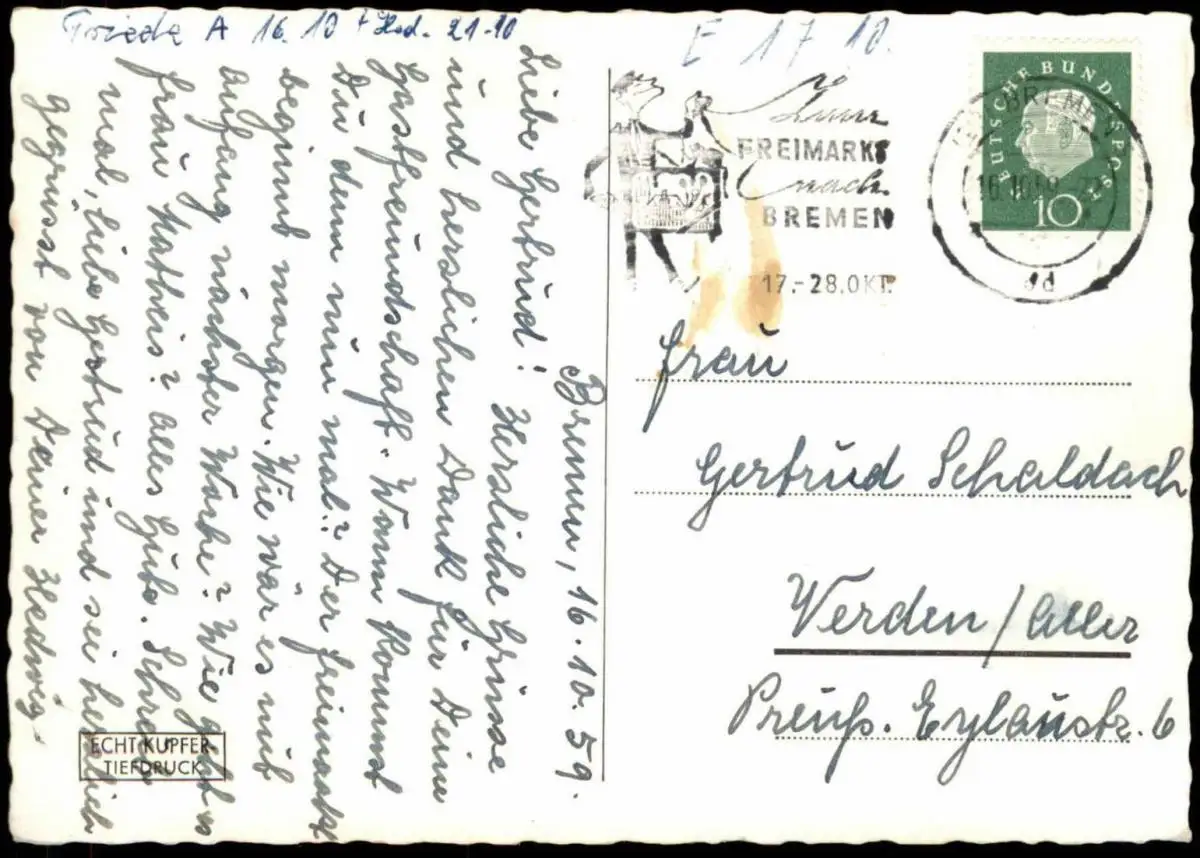 Friede A 16.10 + Hed. 21.10
E 17 10.
Bremen, 16.10.59.
Liebe Gertrud! Herzliche Grüsse
und herzlichen Dank für Deine
Gastfreundschaft. Wann kommst
Du denn nun mal? Der Freimarkt
beginnt morgen. Wie wär es mit
Anfang nächster Woche? Wie geht es
Frau Mattheis? Alles Gute. Schreib
mal, liebe Gertrud und sei herzlich
gegrüsst von Deiner Hedwig.
ECHT KUPFER-
TIEFDRUCK
Zum
FREIMARKT
nach
BREMEN
17.-28.OKT.
BREMEN
16.10.59
DEUTSCHE BUNDESPOST
10
Frau
Gertrud Schaldach
Verden/Aller
Preuß. Eylaustr. 6